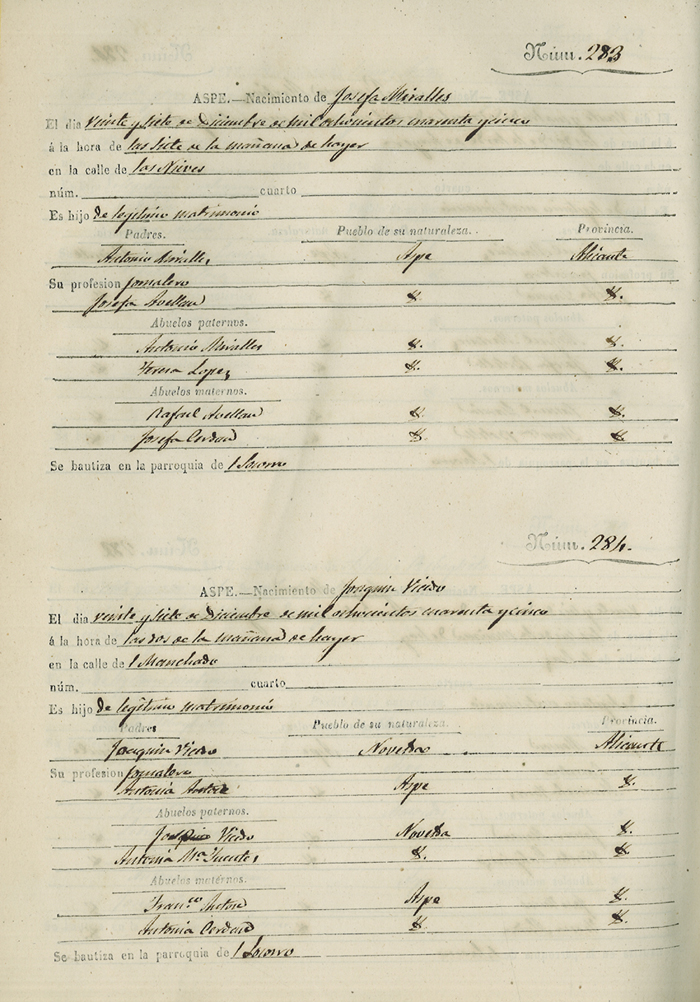 Núm. 283
ASPE.—Nacimiento de Josefa Miralles
El dia veinte y siete de Diciembre de mil ochocientos cuarenta y cinco
á la hora de las siete de la mañana de hayer
en la calle de las Nieves
núm. cuarto
Es hijo de legitimo matrimonio
Padres. Pueblo de su naturaleza. Provincia.
Antonio Miralles Aspe Alicante
Su profesion Jornalero
Josefa Avellan Y. Y.
Abuelos paternos.
Antonio Miralles Y. Y.
Teresa Lopez Y. Y.
Abuelos maternos.
Rafael Avellan Y. Y.
Josefa Cerdan Y. Y.
Se bautiza en la parroquia de l Socorro
Núm. 284.
ASPE.—Nacimiento de Joaquin Vicedo
El dia veinte y siete de Diciembre de mil ochocientos cuarenta y cinco
á la hora de las dos de la mañana de hayer
en la calle de l Manchado
núm. cuarto
Es hijo de legitimo matrimonio
Padres Pueblo de su naturaleza. Provincia.
Joaquin Vicedo Novelda Alicante
Su profesion Jornalero
Antonia Aspe Y.
Abuelos paternos.
Vicedo Novelda Y.
Antonia Mª Fuentes Y. Y.
Abuelos matérnos.
Franco Anton Aspe Y.
Antonia Cerdan Y. Y.
Se bautiza en la parroquia de l Socorro